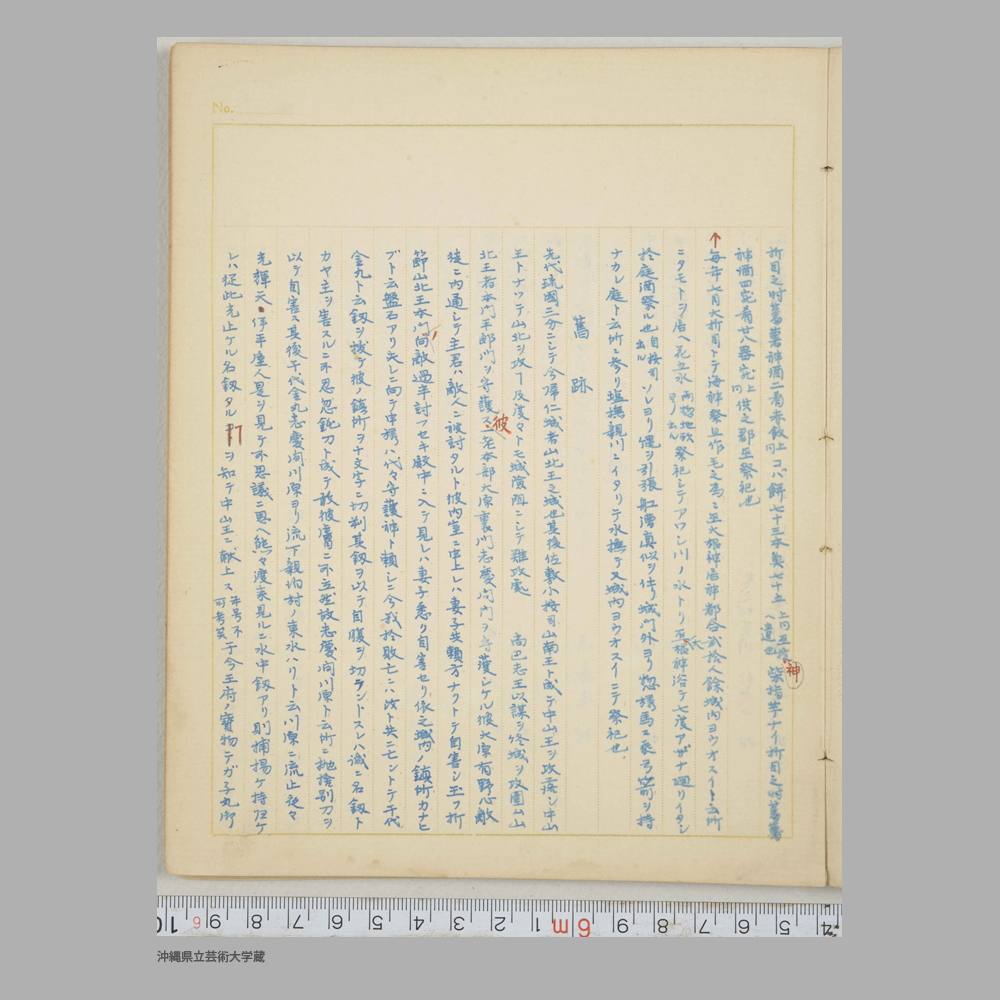 No.
折目之時蕃薯神酒二肴赤飯上同コバ餅七十三本奠七十五上同巫掟へ遣也 神 柴指芋ナイ折目之時蕃薯
神酒四完肴廿八器完上同供之郡巫祭祀也
↑毎年七月大折目トテ海神祭且作毛之為ニ巫大根神居神都合弐拾人餘城内ヨウオスイト云所
ニタモトヲ居ヘ花五水両惣地頭ヨリ出ル祭祀シテアワシ川ノ水トリ巫根神浴テ七度アザナ廻リイタシ
於庭酒祭ル也自按司出ル ソレヨリ縄ヲ引張舡漕真似ヲ仕リ城門外ヨリ惣様馬ニ乗弓箭ヲ持
ナカレ庭ト云所ニ参リ塩撫親川ニイタリテ水撫テ又城内ヨウオスイニテ祭祀也
舊跡
先代琉國三分ニシテ今帰仁城者山北王之城也其後佐敷小按司山南王ト成テ中山王ヲ攻落シ中山
王トナツテ山北ヲ攻ー及度々トモ城険阻ニシテ難攻處 尚巴志王以謀ヲ終城ヲ攻圍山
北王者本門平郎門ヲ守護ス 彼 一老本部大原裏門志慶間門ヲ守護シケル彼大原有野心敵
後ニ内通シテ主君ハ敵人ニ被討タルト披内室ニ申上レハ妻子共頼方ナクトテ自害シ玉フ折
節山北王本門向敵過半討フセキ殿中ニ入テ見レハ妻子悉リ自害セリ依之城内ノ鎮所カナヒ
ブト云盤石アリ夫レニ向テ申様ハ代々守護神ト頼シニ今我於敗亡ニハ汝ト共ニ亡ントテ千代
金丸ト云釼ヲ抜テ彼ノ鎮所ヲ十文字ニ切刹其釼ヲ以テ自腹ヲ切ラントスレハ誠ニ名釼ト
カヤ主ヲ害スルニ不忍忽鈍刀ト成テ敢彼膚ニ不立然故志慶間川原ト云所ニ抛捨別刀ヲ
以テ自害ス其後千代金丸志慶間川原ヨリ流下親泊村ノ東水ハリト云川原ニ流止夜々
光輝天伊平屋人是ヲ見テ不思議ニ思ヘ態々渡来見ルニ水中釼アリ則捕揚ケ持帰ケ
レハ従此光止ケル名釼タルヿヲ知テ中山王ニ献上ス年号不可考矣于今王府ノ寶物テガ子丸御
沖縄県立芸術大学蔵